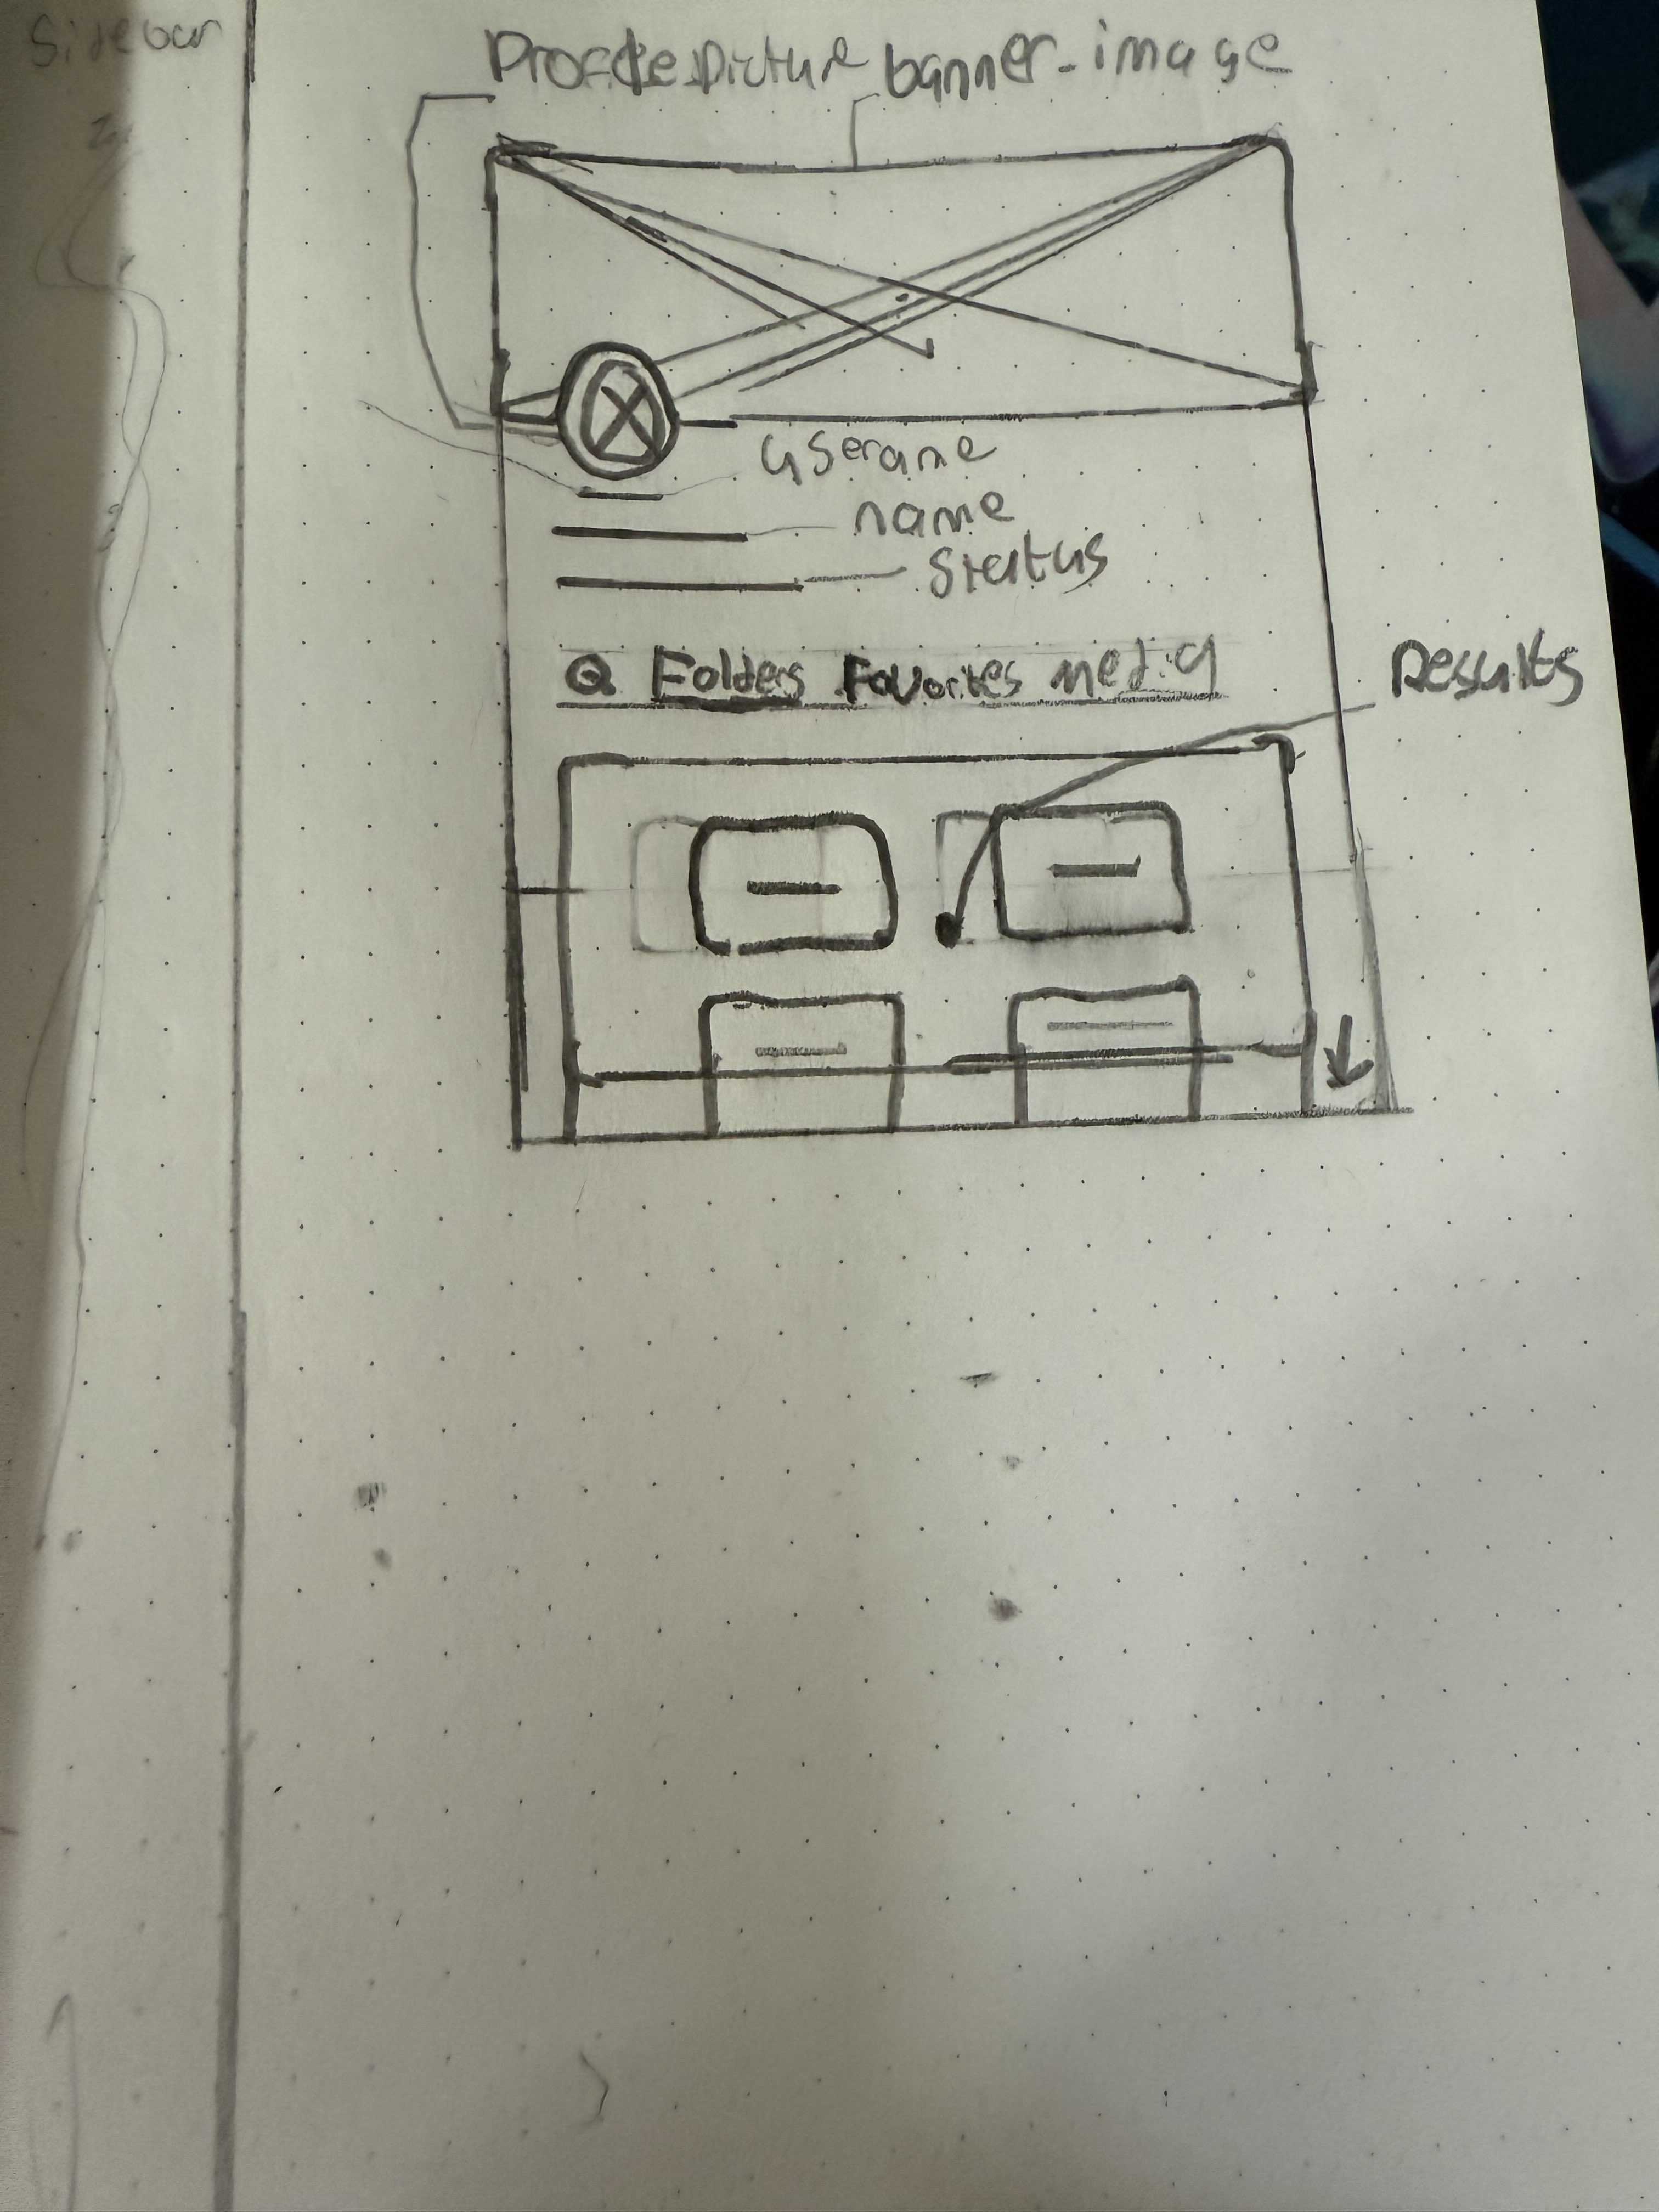 Sidebar
Profile Picture banner-image
Userame
name
Status
Folders Favorites media
Results